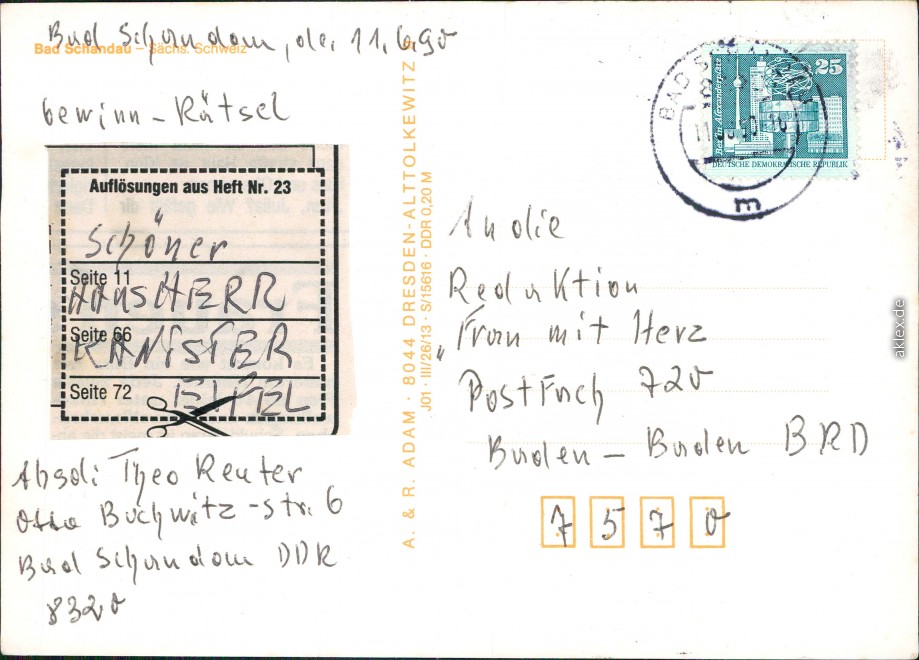 Bad Schandau, de. 11.6.90
Bad Schandau – Sächs. Schweiz
Gewinn-Rätsel
Auflösungen aus Heft Nr. 23
Schöner
Seite 11
HAUSHERR
Seite 66
KANISTER
Seite 72
EIFEL
Absd: Theo Reuter
Otto Buchwitz-str. 6
Bad Schandau DDR
8320
A. & R. ADAM · 8044 DRESDEN-ALTTOLKEWITZ
J01 · III/26/13 · S/15616 · DDR 0,20 M
BAD SCHANDAU
m
25
Berlin, Alexanderplatz
DEUTSCHE DEMOKRATISCHE REPUBLIK
An die
Redaktion
„Frau mit Herz
Postfach 720
Baden-Baden BRD
7570
aklex.de